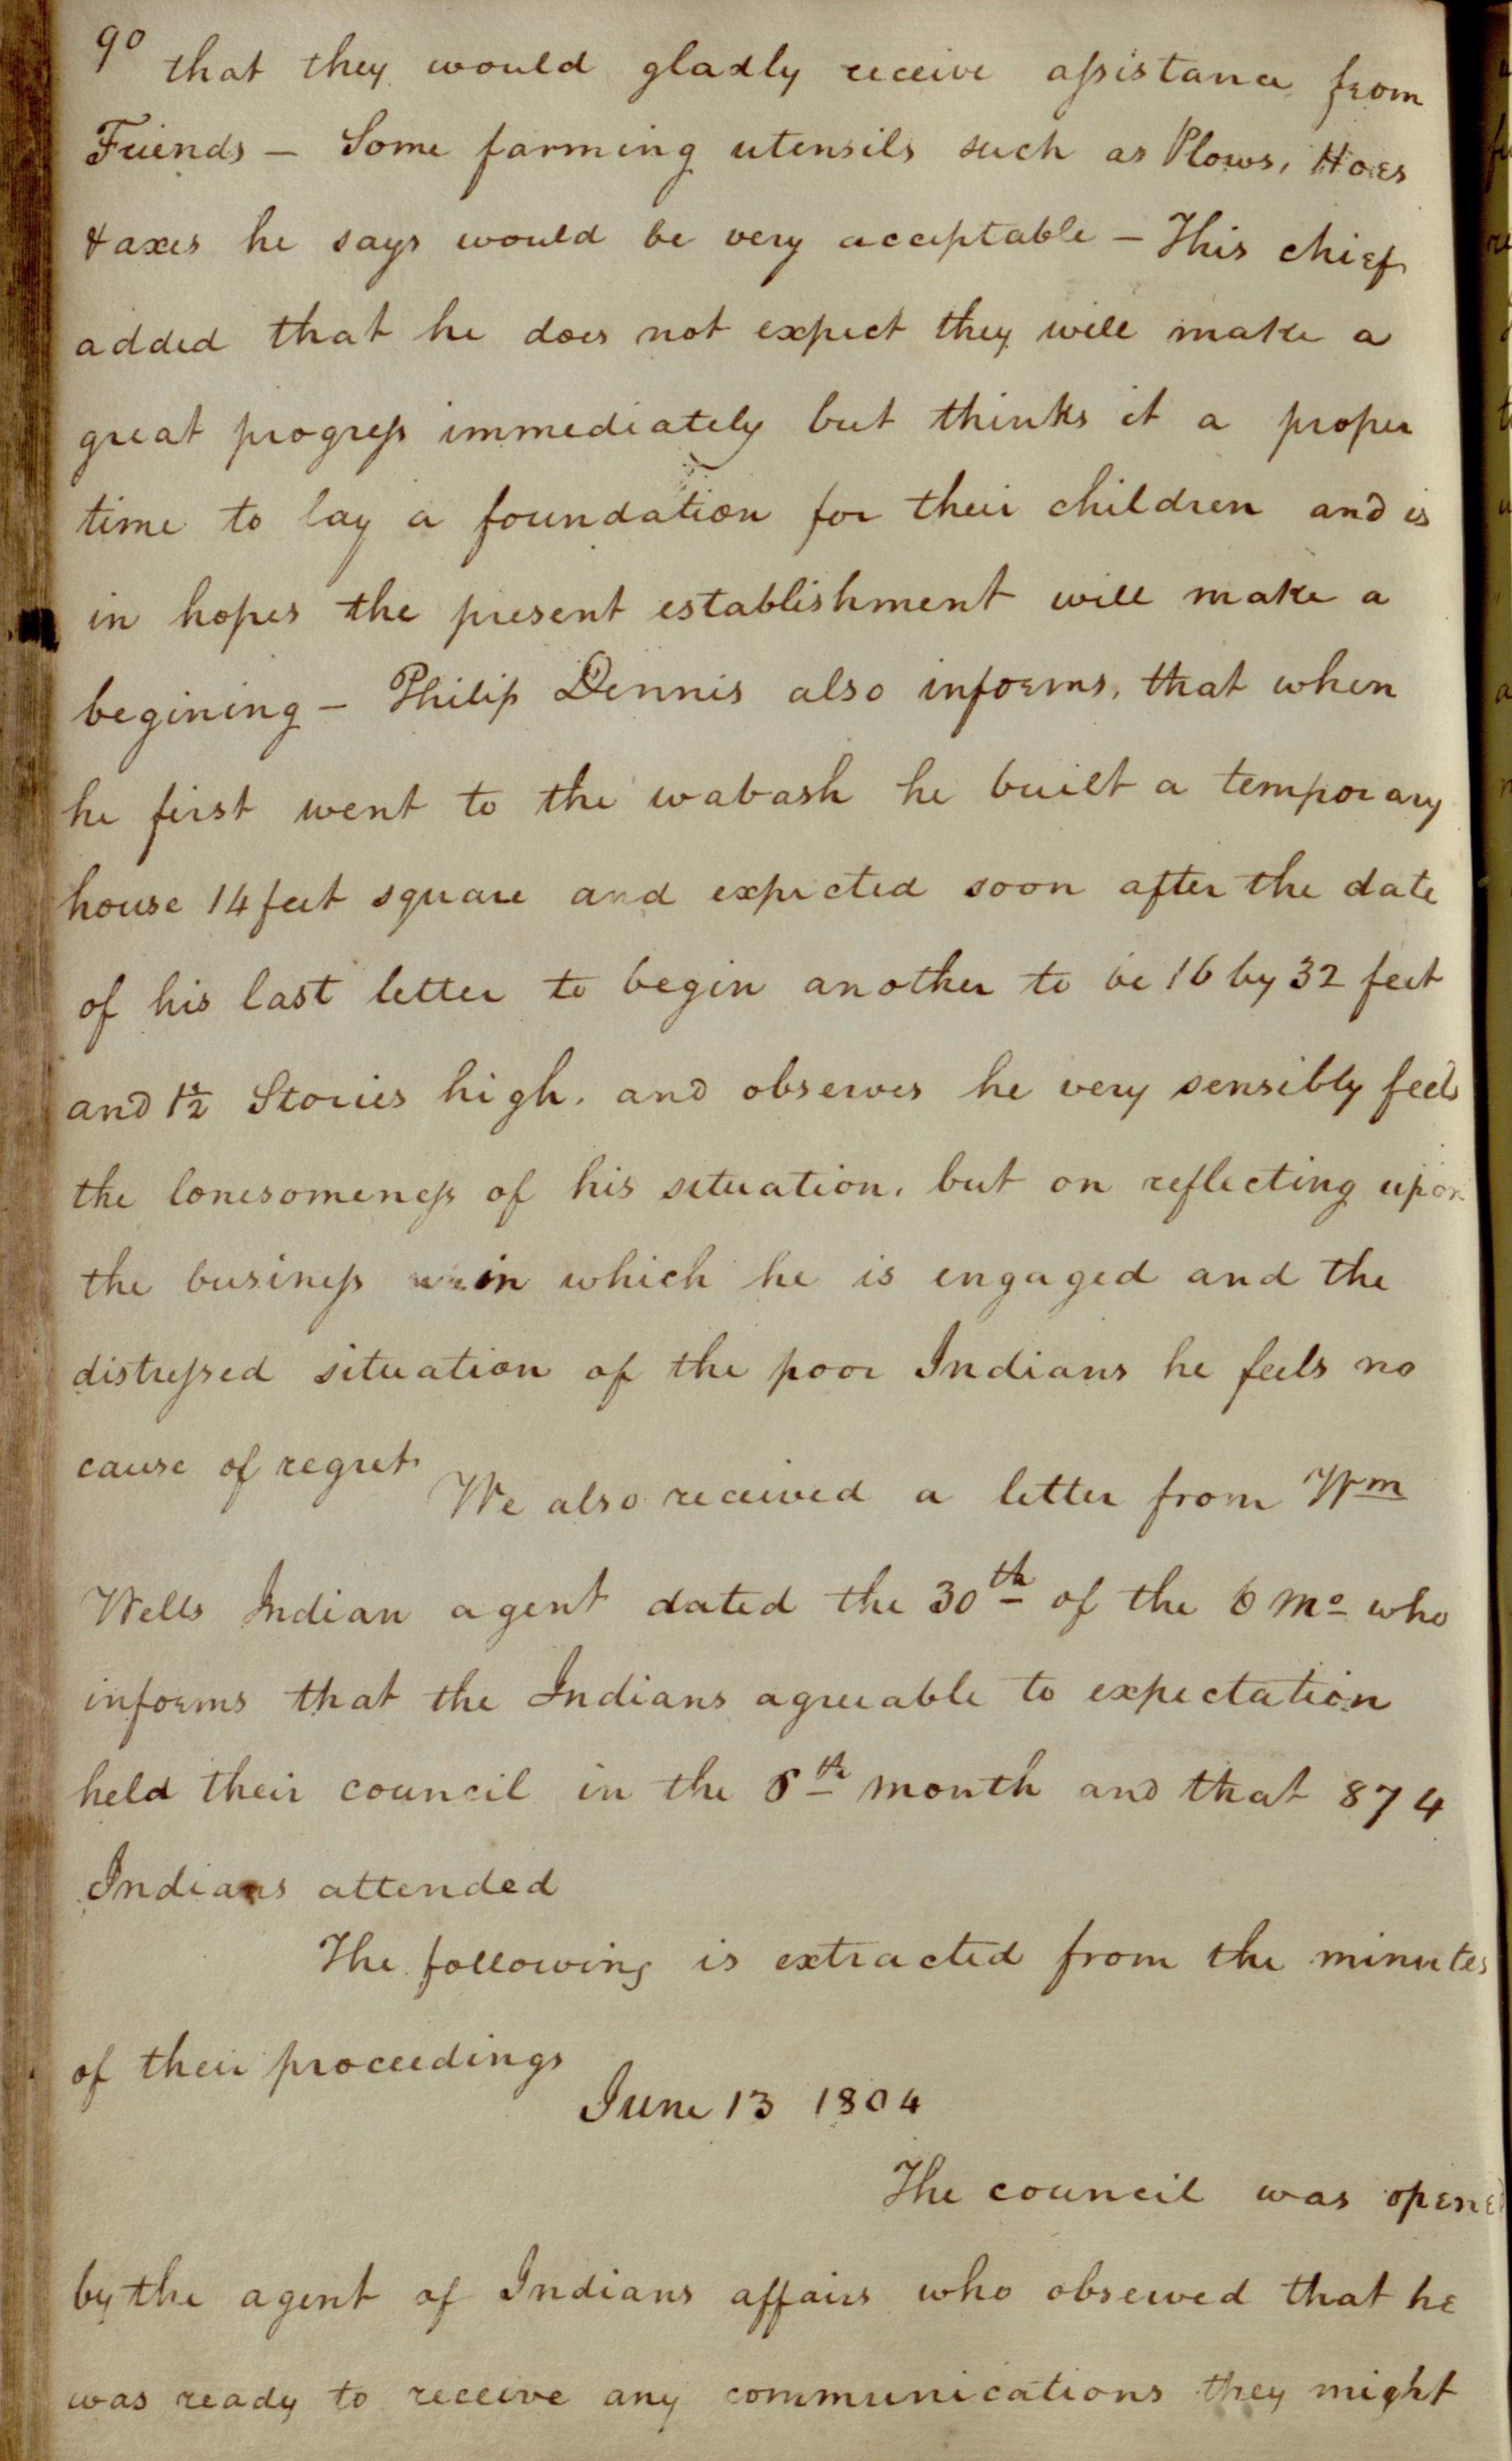 90 that they would gladly receive assistance from
Friends — Some farming utensils such as Plows, Hoes
& axes he says would be very acceptable — This chief
added that he does not expect they will make a
great progress immediately but thinks it a proper
time to lay a foundation for their children and is
in hopes the present establishment will make a
begining — Philip Dennis also informs, that when
he first went to the wabash he built a temporary
house 14 feet square and expected soon after the date
of his last letter to begin another to be 16 by 32 feet
and 1½ Stories high. and observes he very sensibly feels
the lonesomeness of his situation, but on reflecting upon
the business in which he is engaged and the
distressed situation of the poor Indians he feels no
cause of regret.
We also received a letter from Wm
Wells Indian agent dated the 30th of the 6 mo who
informs that the Indians agreeable to expectation
held their council in the 6th month and that 874
Indians attended
The following is extracted from the minutes
of their proceedings
June 13 1804
The council was opened
by the agent of Indians affairs who observed that he
was ready to receive any communications they might